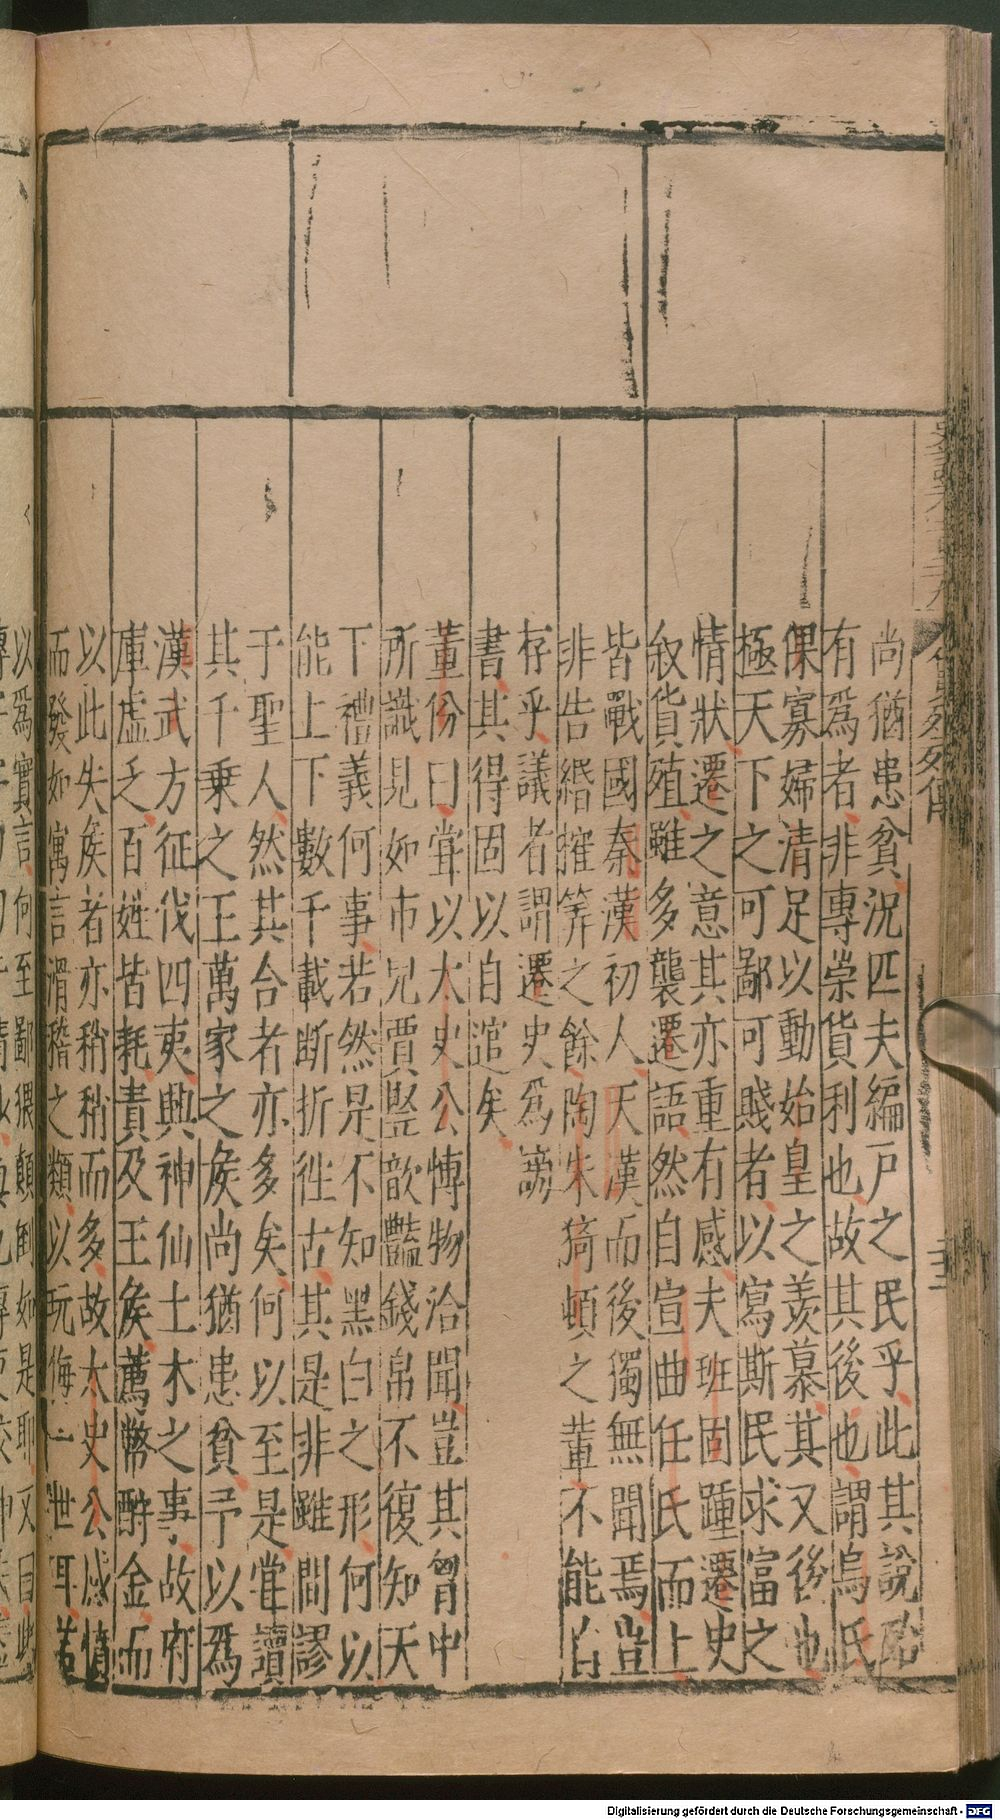 尚猶患貧況匹夫編戶之民乎此其說
有爲者非專崇貨利也故其後也謂烏氏
倮寡婦清足以動始皇之羨慕其又後也
極天下之可鄙可賤者以寫斯民求富之
情狀遷之意其亦重有感夫班固踵遷史
叙貨殖雖多襲遷語然自宣曲任氏而上
皆戰國秦漢初人天漢而後獨無聞焉豈
非告緡搉筭之餘陶朱猗頓之輩不能自
存乎議者謂遷史爲謗
書其得固以自逭矣
董份曰嘗以太史公博物洽聞豈其胷中
所識見如市兒賈豎歆豔錢帛不復知天
下禮義何事若然是不知黑白之形何以
能上下數千載斷折徃古其是非雖間謬
于聖人然其合者亦多矣何以至是嘗讀
其千乗之王萬家之侯尚猶患貧予以爲
漢武方征伐四夷興神仙土木之事故府
庫虛乏百姓皆耗責及王侯薦幣酎金而
以此失侯者亦稍稍而多故太史公感憤
而發如寓言滑稽之類以玩侮一世耳若
以爲實言何至鄙猥顛倒如是耶又曰此
Digitalisierung gefördert durch die Deutsche Forschungsgemeinschaft - DFG